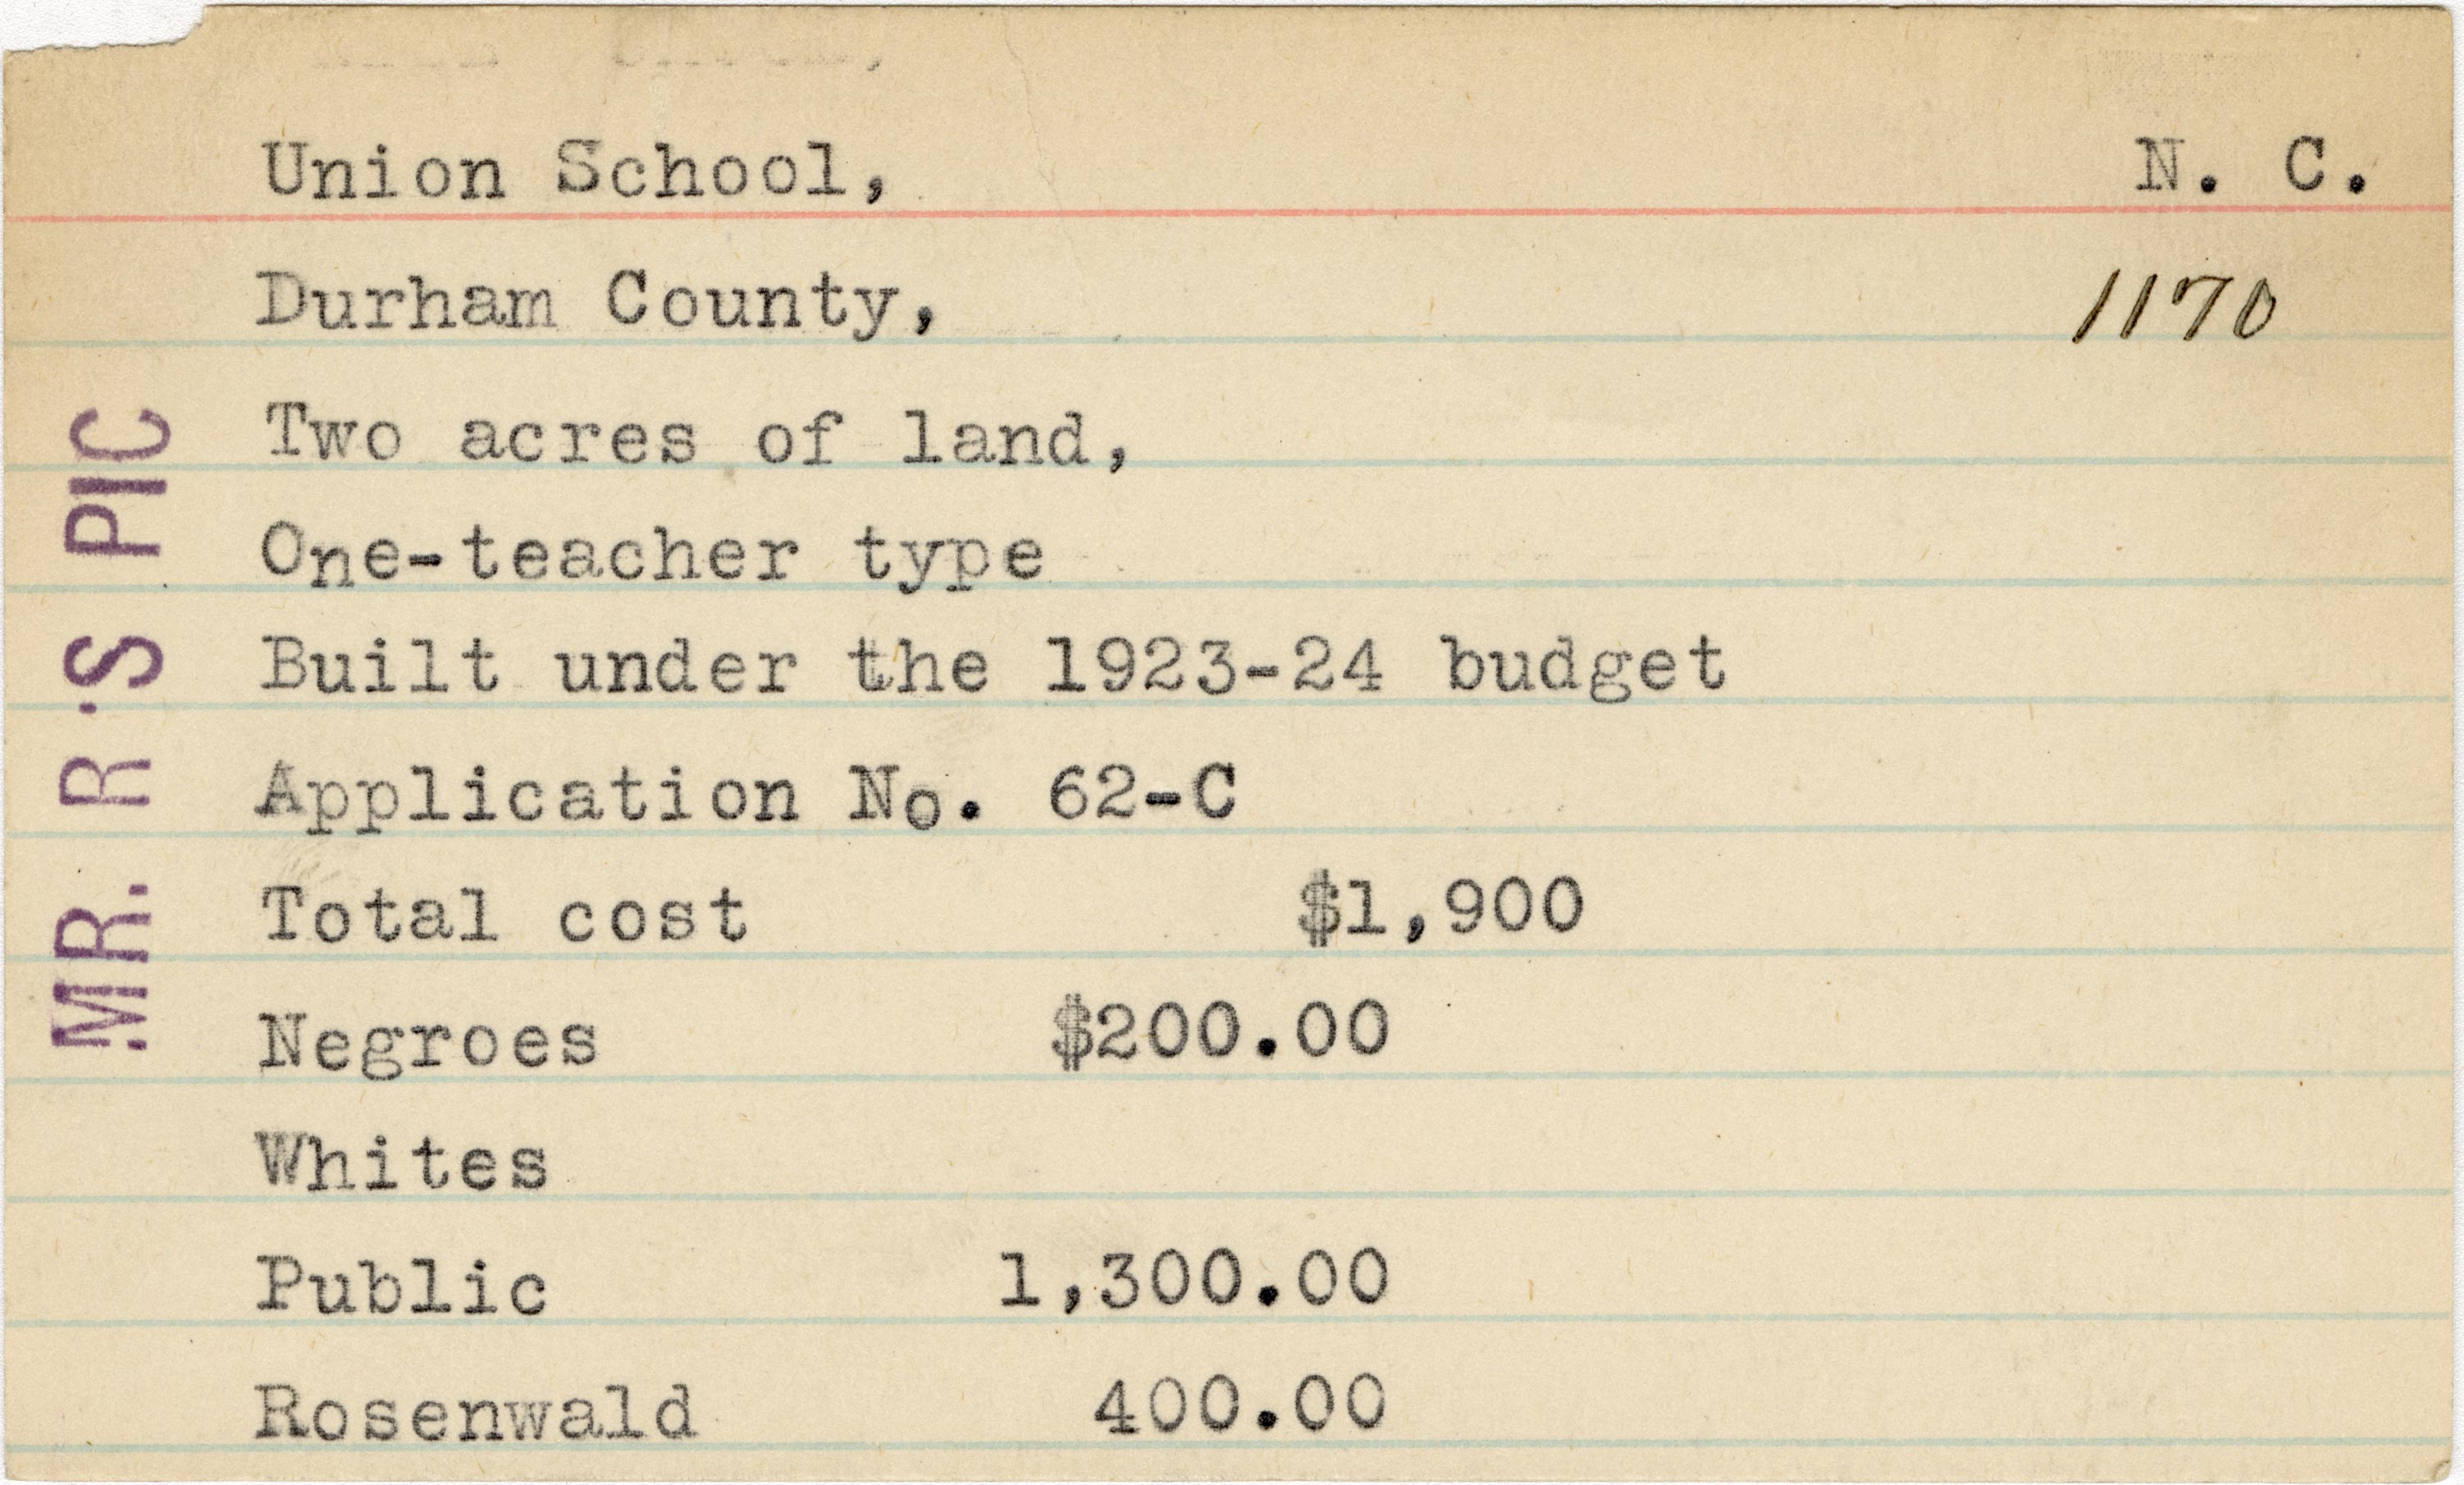 Union School, N. C.
Durham County, 1170
Two acres of land,
One-teacher type
Built under the 1923-24 budget
Application No. 62-C
Total cost $1,900
Negroes $200.00
Whites
Public 1,300.00
Rosenwald 400.00
MR. R'S PIC